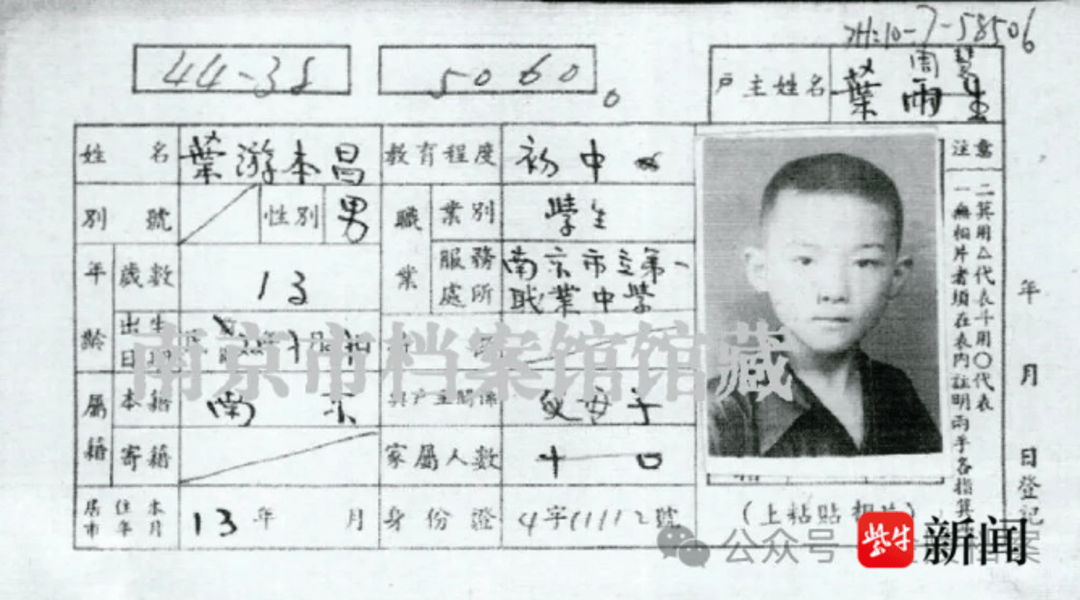 44-38
5060
58506
戶主姓名 葉雨生
周
姓名 葉游本昌 教育程度 初中
別號 性別 男 職業 業別 學生
年齡 歲數 13 服務處所 南京市立第一職業中學
出生日期
屬籍 本籍 南京 與戶主關係 子
寄籍 家屬人數 十口
居住本市年月 13年 月 身份證 4字11112號
(上粘貼相片)
注意
一無相片者須在表內註明兩手各指箕
二箕用△代表斗用〇代表
年 月 日登記
南京市档案馆馆藏
公众号
紫牛新闻